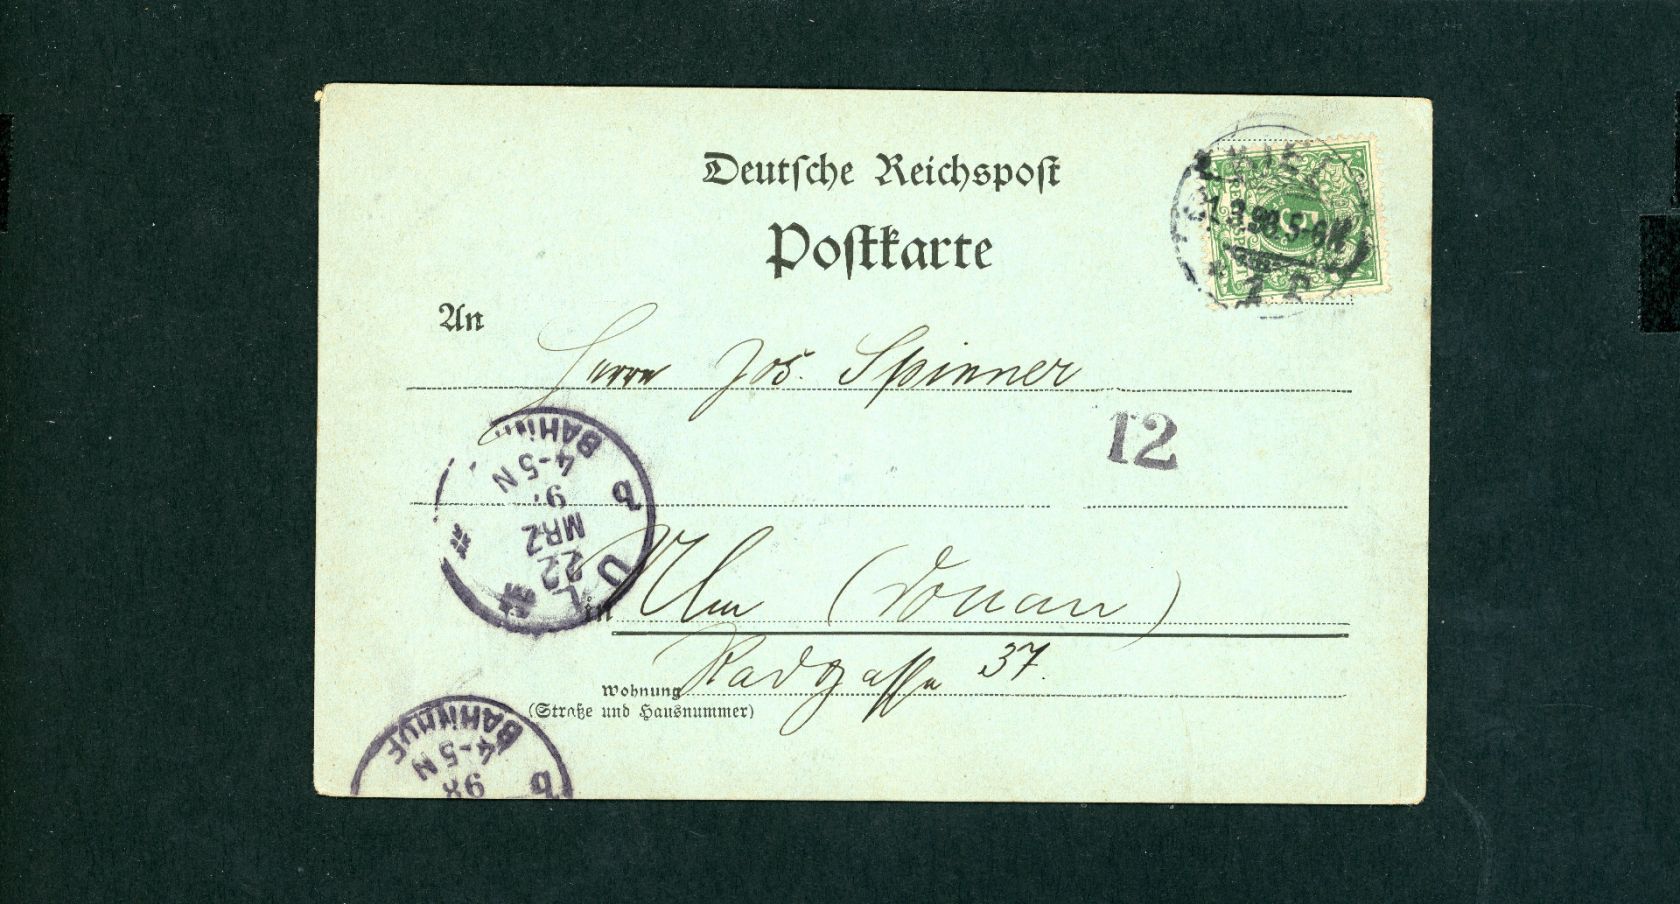 Deutsche Reichspost
Postkarte
KIEL
21.3.98.5-6N
* 1 r
An
Herrn Jos. Spinner
12
BAHNH
4-5 N
9
MRZ
22
b
U L
in Ulm (Donau)
Radgasse 37.
Wohnung
(Straße und Hausnummer)
BAHNHOF
4-5 N
98
b